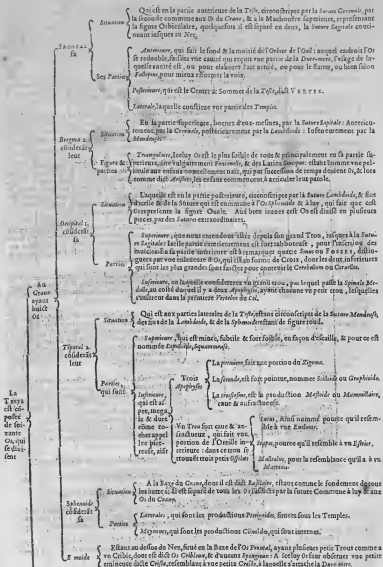 Qui est en la partie anterieure de la Teste, circonscripte par la Suture Coronale, par
la seconde commune aux Os du Crane, & à la Machouëre superieure, representant
la figure Orbiculaire, quelquesfois il est separé en deux, la Suture Sagitale conti-
nuant jusques au Nez.
Situation
FRONTAL
sa
Ses Parties
Anterieure, qui fait le fond & la moitié de l'Orbite de l'Oeil: auquel endroit l'Os
se redouble, faisant une cavité qui reçoit une partie de la Dure-mere, l'usage de la-
quelle cavité est, ou pour elabourer l'air attiré, ou pour le flairer, ou bien selon
Fallopius, pour mieux efformer la voix.
Posterieure, qui est le Centre & Sommet de la Teste, dict VERTEX.
Laterale, laquelle constitue une partie des Temples.
Bregma 2.
cósiderás
leur
Situation
En la partie superieure, bornez d'eux-mesmes, par la Suture Sagitale: Anterieu-
rement, par la Coronale, posterieurement par la Lambdoide: Inferieurement par la
Mendeuse.
Figure &
parties
Triangulaire, Iceluy Os est le plus foible de tous & principalement en sa partie su-
perieure, dite vulgairement Fontenelle, & des Latins Sinciput: estant comme une pel-
licule aux enfans nouvellement naiz, qui par succession de temps devient Os, & lors
comme dict Aristote, les enfans commencent à articuler leur parole.
Occipital 1.
cósiderás
sa
Situation
Laquelle est en la partie posterieure, circonscripte par la Suture Lambdoide, & finit
& de la Suture qui est commune à l'Os Sphenoide & à luy, qui fait que cest
Os represente la figure Ovale. Aux bien jeunes cest Os est divisé en plusieurs
pieces par des Sutures extraordinaires.
Parties
Superieure, que nous entendons estre depuis son grand Trou, jusques à la Sutu-
re Sagitale: laquelle partie exterieurement est fort rabboteuse, pour l'insertion des
muscles: en sa partie interieure est à remarquer quatre Sinus ou FOSSES, distin-
guées par une eminence d'Os, qui est en forme de Croix, dont les deux inferieures
qui sont les plus grandes sont faictes pour contenir le Cerebellum ou Cervelet.
Inferieure, en laquelle considererez un grand trou, par lequel passe la Spinale Me-
dulle, au costé duquel il y a deux Apophyses, ayant chacune un petit trou, lesquelles
s'inserent dans la premiere Vertebre du Col.
La
TESTE
est có-
posée
de soi-
xante
Os, qui
se divi-
sent
Au
Crane
ayant
huict
Os
Téporal 2.
cósiderás
leur
Situation
Qui est aux parties laterale de la Teste, estans circonscripts de la Suture Mendeuse,
des fins de la Lambdoide, & de la Sphenoide estant de figure rond.
Parties,
qui sont
Superieure, qui est mince, subtile & fort foible, en façon d'escaille, & pour ce est
nommée Lepidoide, Squammeuse.
Inferieure,
qui est as-
pre, inega-
le & dure
cóme ro-
cher appel-
lée pier-
reuse, aiāt
Trois
Apophyses
La premiere, fait une portion du Zigoma.
La seconde, est fort pointue, nommée Stiloide ou Graphioide.
La troisiesme, est la production Mastoide ou Mammillaire,
cave & anfractueuse.
Un Trou fort cave & an-
fractueux, qui fait une
portion de l'Oreille in-
terieure: dans ce trou se
trouvēt trois petits Osselets
Incus, Ainsi nommé pource qu'il resem-
ble à une Enclume.
Stapes, pource qu'il resemble à un Estrier.
Malleolus, pour la ressemblance qu'il a à un
Marteau.
Sphenoide
cósiderás
sa
Situation
A la Baze du Crane, dont il est dict Basilaire, estant comme le fondement de tous
les autres: & est separé de tous les Os susdicts par la suture Commune à luy & aux
Os du Crane.
Parties
Laterales, qui sont les productions Pterigoides, situees sous les Temples.
Moyennes, qui sont les productions Clinoides, qui sont internes.
E moide
Estant au dessus du Nez, situé en la Baze de l'Os Frontal, ayant plusieurs petit Trous comme à
un Crible, dont est dict Os Cribleux, & d'aucuns Spongieux: A iceluy Os faut observer une petite
eminence dicte Criste, resemblante à une petite Creste, à laquelle s'attache la Dure-mere.